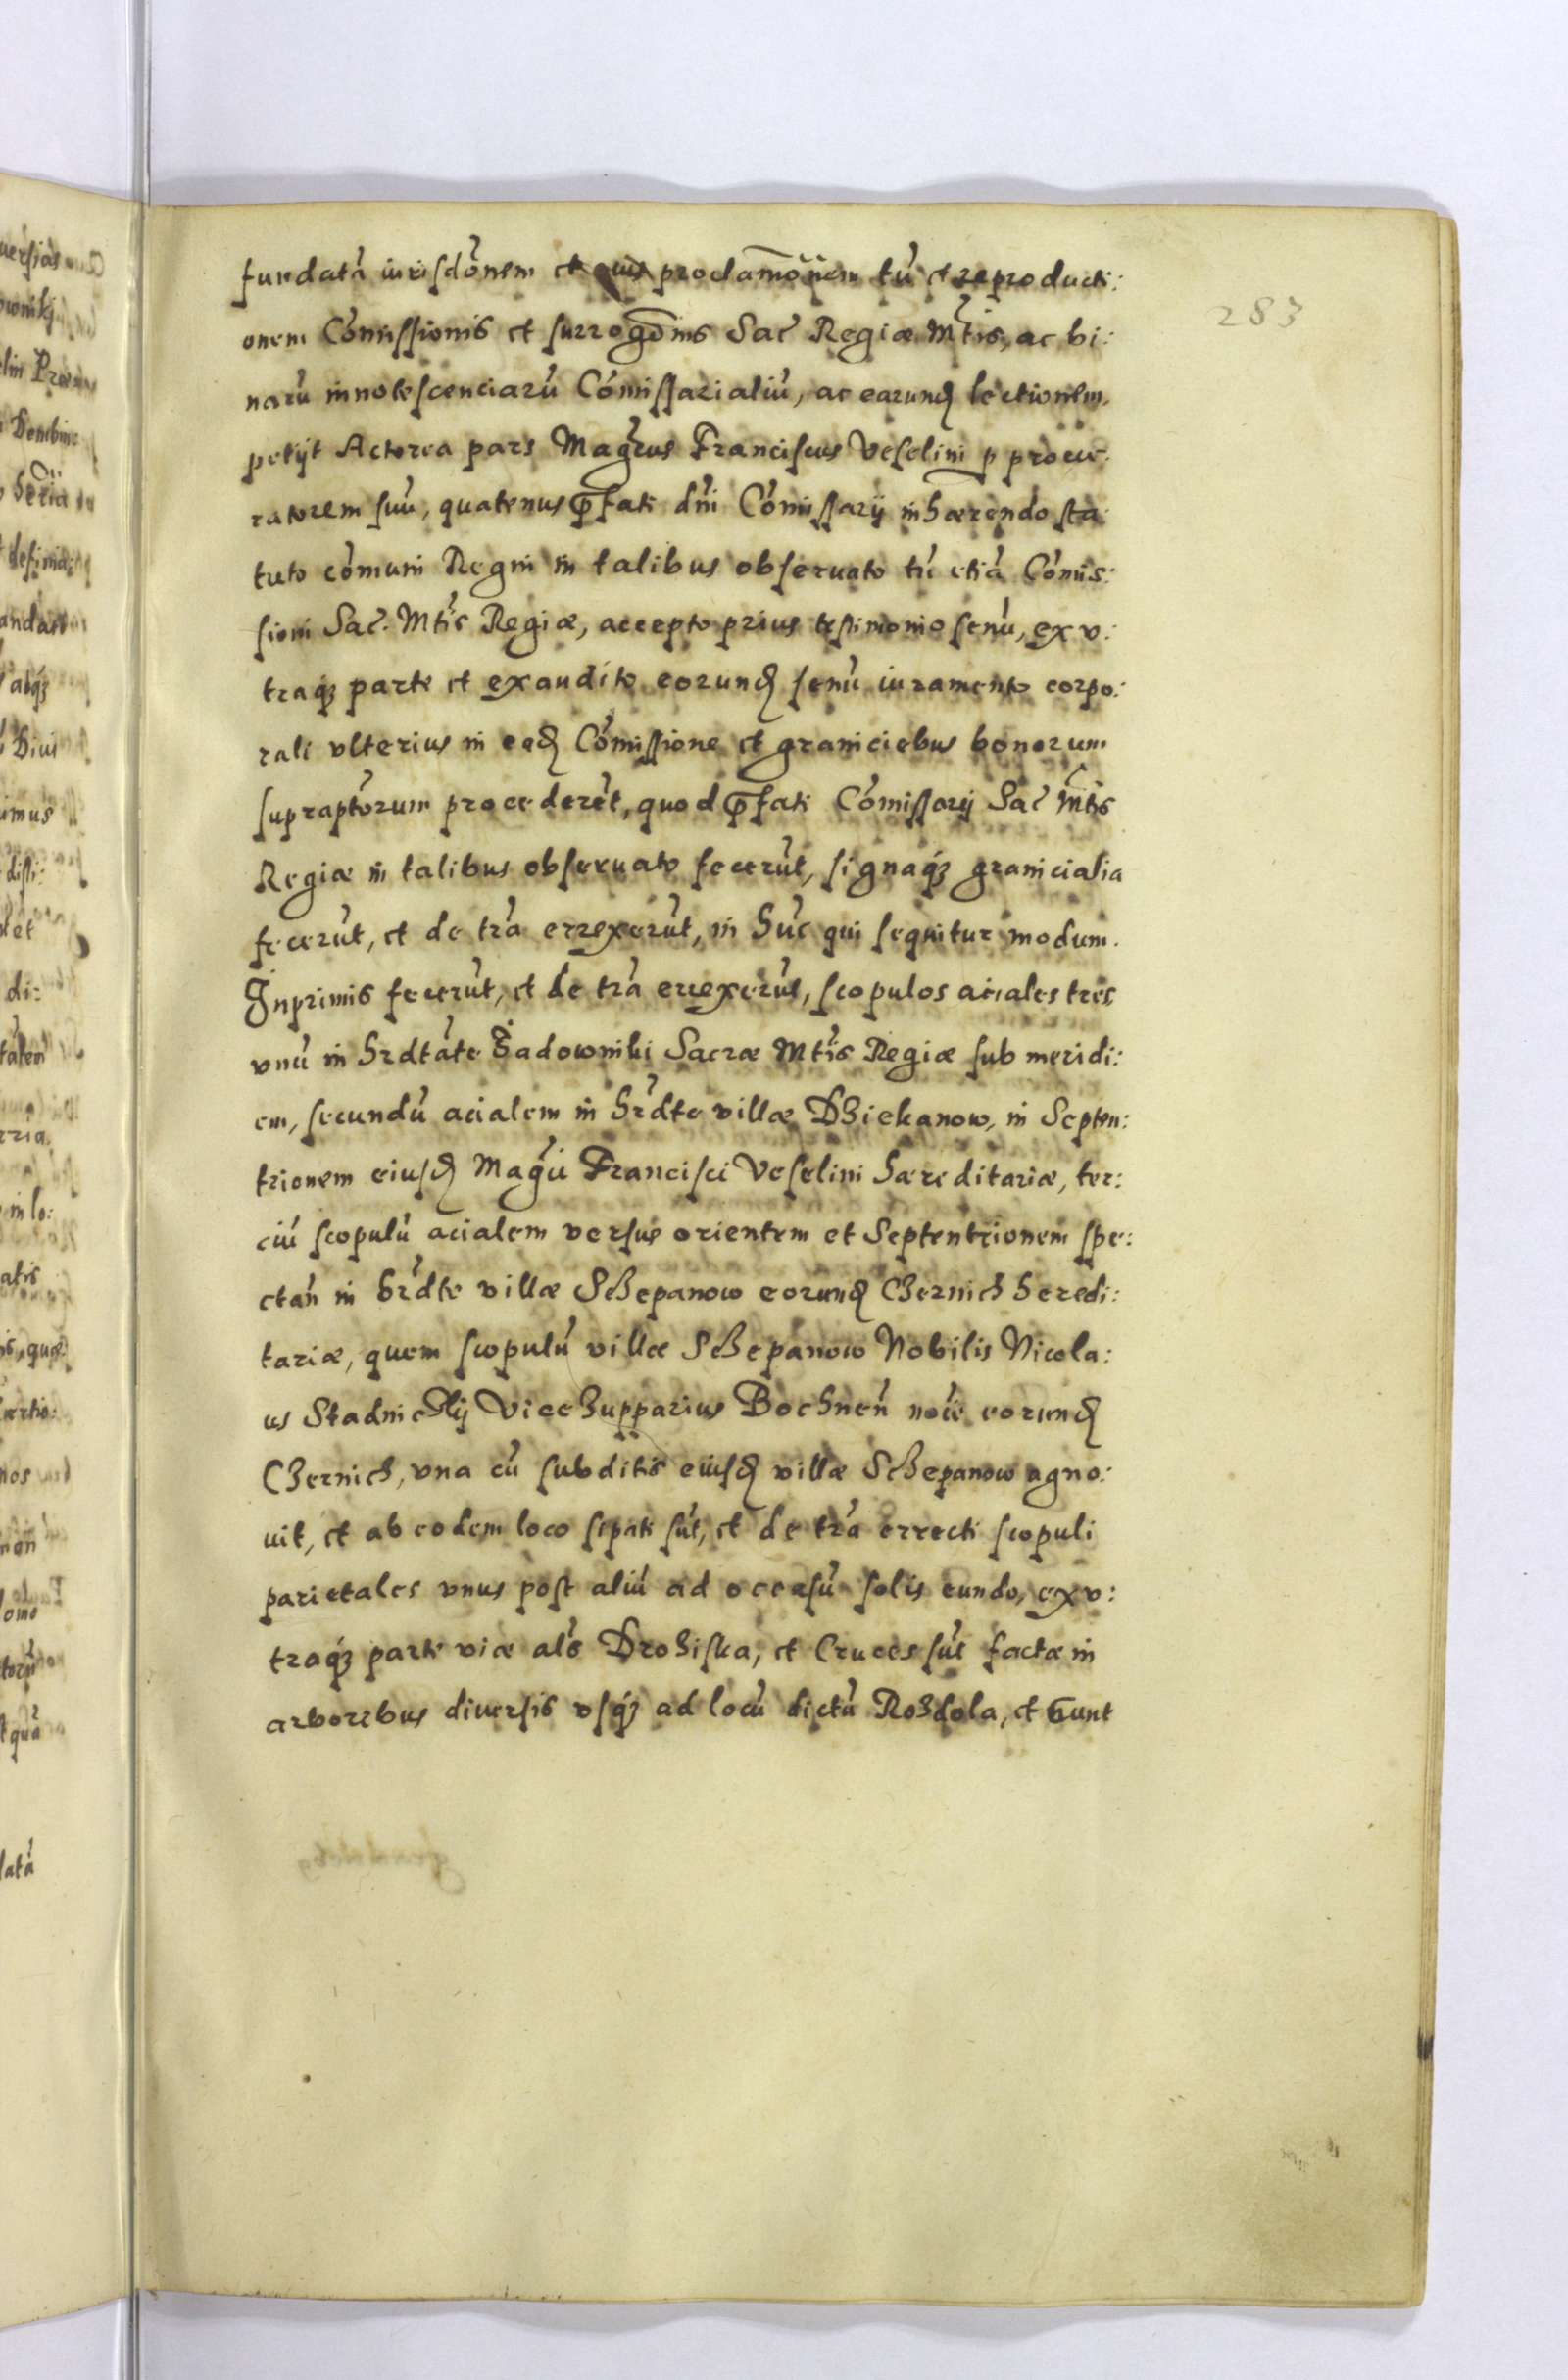 283
fundatā iurisdōnem et eius proclamōnem tū et reproducti:
onem Cōmissionis et surrogōnis Sac̄ Regiæ Mt̄is, ac bi:
narū innotescenciarū Cōmissarialiū, ac earund̨ lectionem,
petijt Actorea pars Mag̃cus Franciscus Veselini p procu:
ratorem suū, quatenus p̄fati dn̄i Cōmissarij inhærendo sta:
tuto cōmuni Regni in talibus obseruato tū etiā Cōmis:
sioni Sac̄. Mt̄is Regiæ, accepto prius testimonio senū, ex v:
traq̨ parte et exaudito eorund̨ senū iuramento corpo:
rali vlterius in ead̨ Cōmissione et graniciebus bonorum
supraptōrum procederēt, quod p̄fati Cōmissarij Sac̄ Mt̄is
Regiæ in talibus obseruato fecerūt, signaq̨ granicialia
fecerūt, et de tr̄a errexerūt, in hūc qui sequitur modum.
Inprimis fecerūt, et de tr̄a errexerūt, scopulos aciales tres
vnū in hrdtāte Sadowniki Sacræ Mt̄is Regiæ sub meridi:
em, secundū acialem in hr̄dte villæ Dziekanow, in Septen:
trionem eiusd̨ Mag̃ci Francisci Veselini hæreditariæ, ter:
ciū scopulū acialem versus orientem et Septentrionem spe:
ctan̄ in hr̄dte villæ Sczepanow eorund̨ Czernich heredi:
tariæ, quem scopulū villæ Sczepanow Nobilis Nicola:
us Stadnicklij Vicezupparius Bochnen̄ noīe eorund̨
Czernich, vna cū subditis eiusd̨ villæ Sczepanow agno:
uit, et ab eodem loco sipati sūt, et de tr̄a errecti scopuli
parietales vnus post aliū ad occasū solis eundo, ex v:
traq̨ parte viæ als̄ Droziska, et Cruces sūt factæ in
arboribus diuersis vsq̨ ad locū dictū Rozdola, et sunt